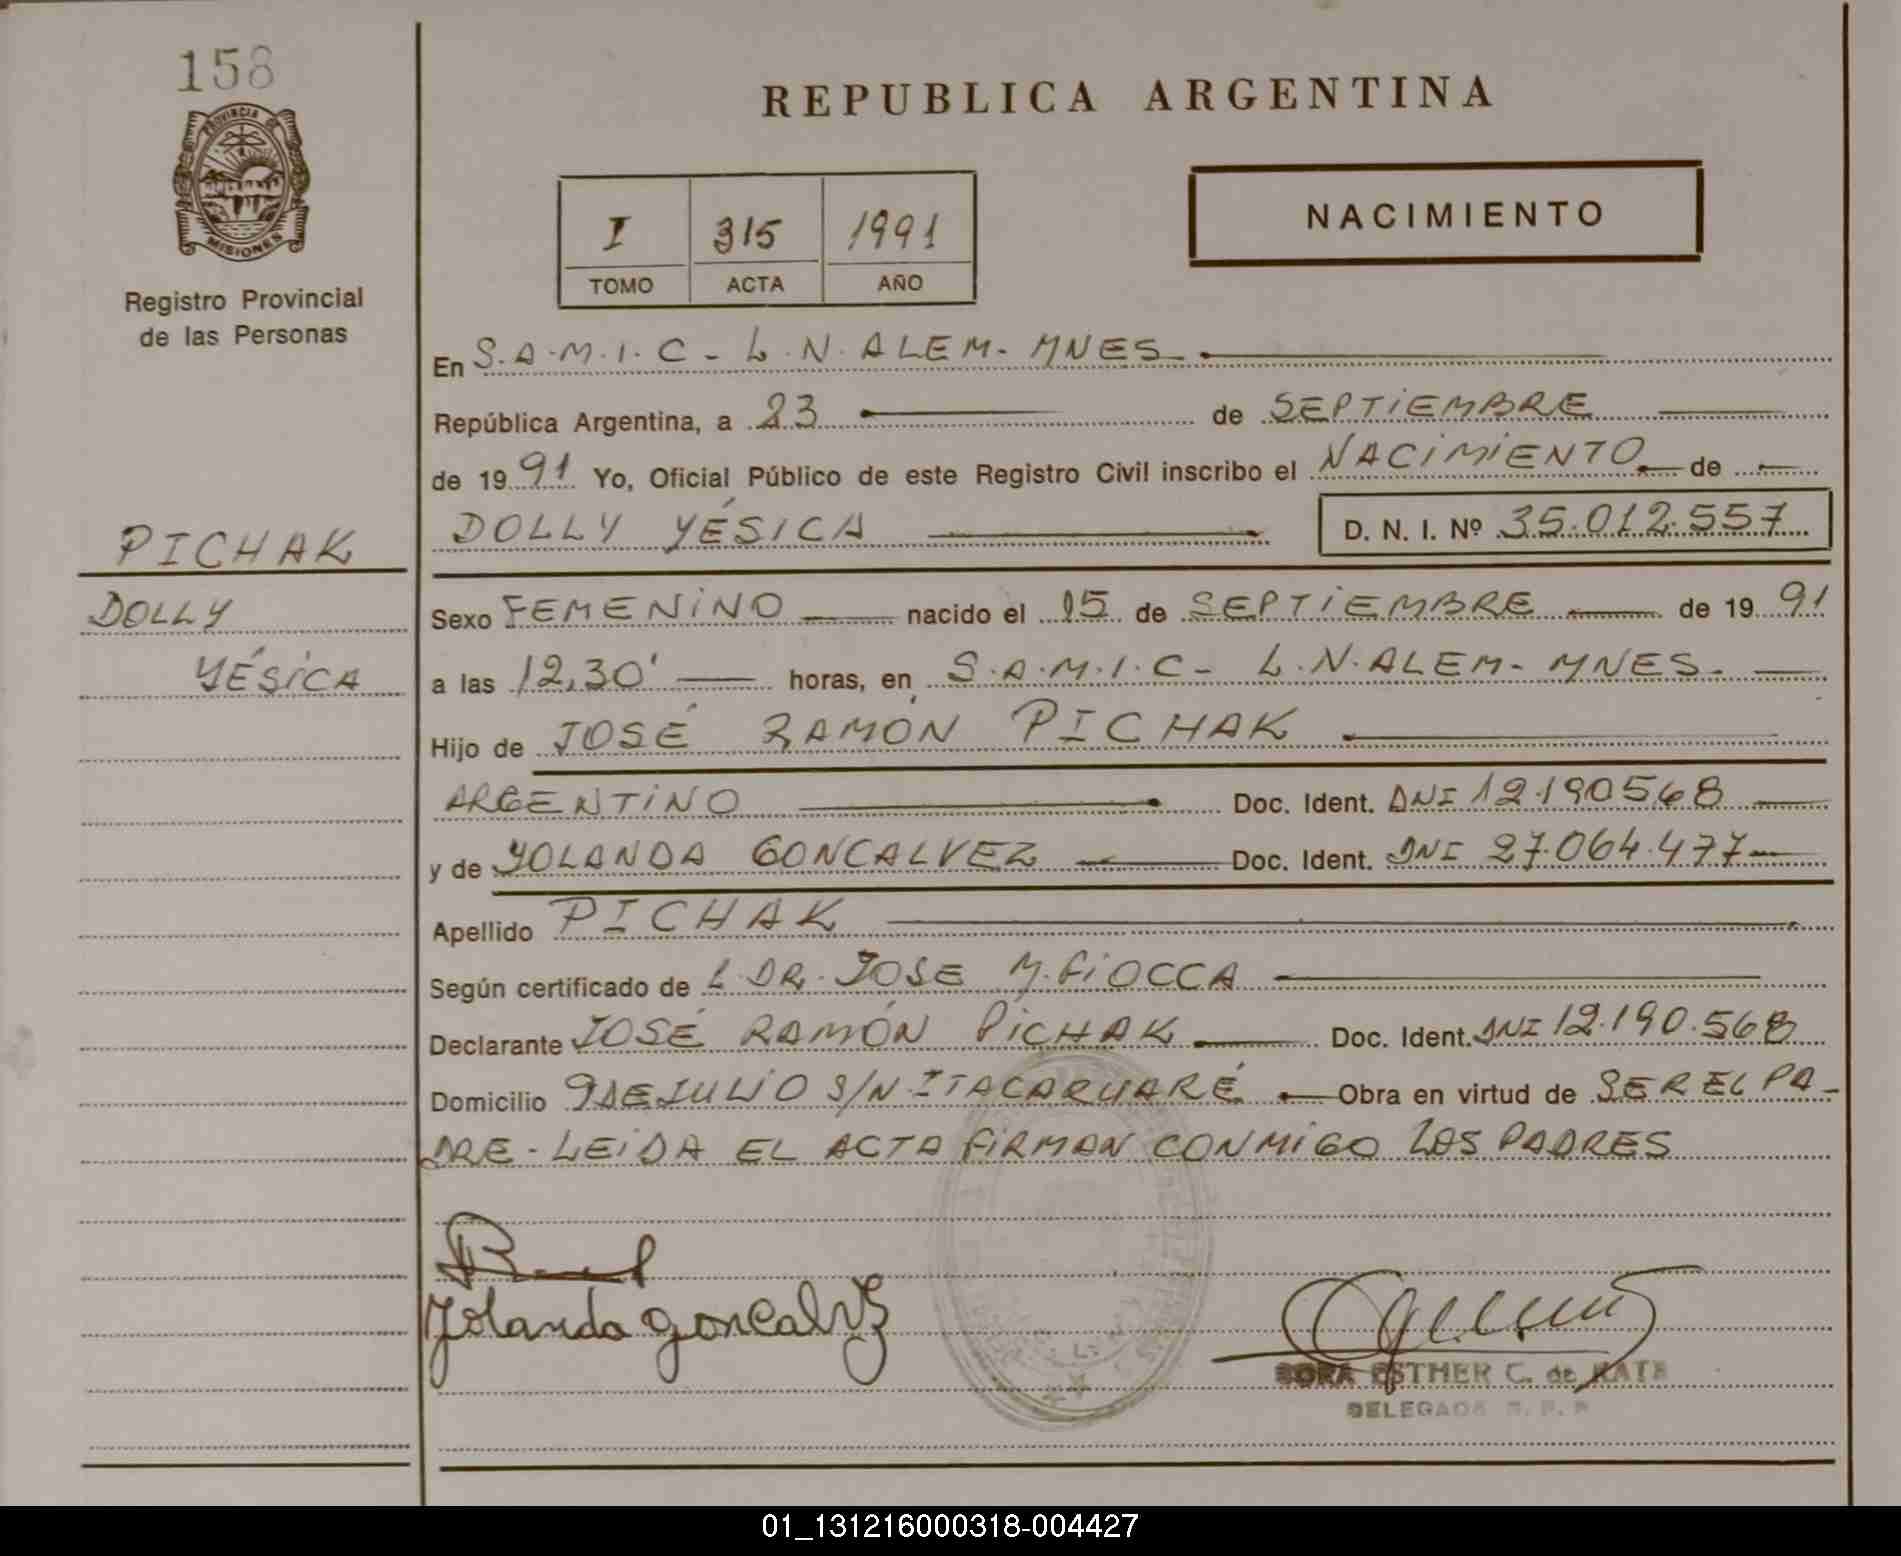 158
PROVINCIA DE
MISIONES
Registro Provincial
de las Personas
PICHAK
DOLLY
YÉSICA
REPUBLICA ARGENTINA
I 315 1991
TOMO ACTA AÑO
NACIMIENTO
En S.A.M.I.C - L.N.ALEM - MNES.
República Argentina, a 23 de SEPTIEMBRE
de 1991 Yo, Oficial Público de este Registro Civil inscribo el NACIMIENTO de
DOLLY YÉSICA D. N. I. Nº 35.012.557
Sexo FEMENINO nacido el 15 de SEPTIEMBRE de 1991
a las 12,30' horas, en S.A.M.I.C - L.N.ALEM - MNES.
Hijo de JOSÉ RAMÓN PICHAK
ARGENTINO Doc. Ident. DNI 12.190568
y de YOLANDA GONCALVEZ Doc. Ident. DNI 27.064.477
Apellido PICHAK
Según certificado de L. DR. JOSE M. FIOCCA
Declarante JOSÉ RAMÓN PICHAK Doc. Ident. DNI 12.190.568
Domicilio 9 DE JULIO S/N ITACARUARÉ Obra en virtud de SER EL PA-
DRE - LEIDA EL ACTA FIRMAN CONMIGO LOS PADRES
Yolanda goncalvez
ESTHER C. de
DELEGADA R. P. P
01_131216000318-004427